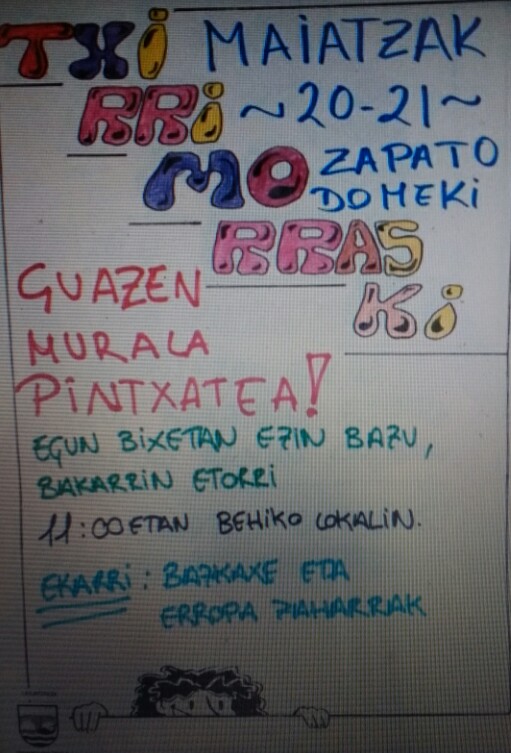 TXI
RRi
MO
RRAS
Ki
MAiATZAK
~20-21~
ZAPATO
DOMEKi
GUAZEN
MURALA
PiNTXATEA!
EGUN BiXETAN EZIN BAZU,
BAKARRIN ETORRi
11:00ETAN BEHiKO LOKALiN.
EKARRi: BAZKAXE ETA
ERROPA ZAHARRAK